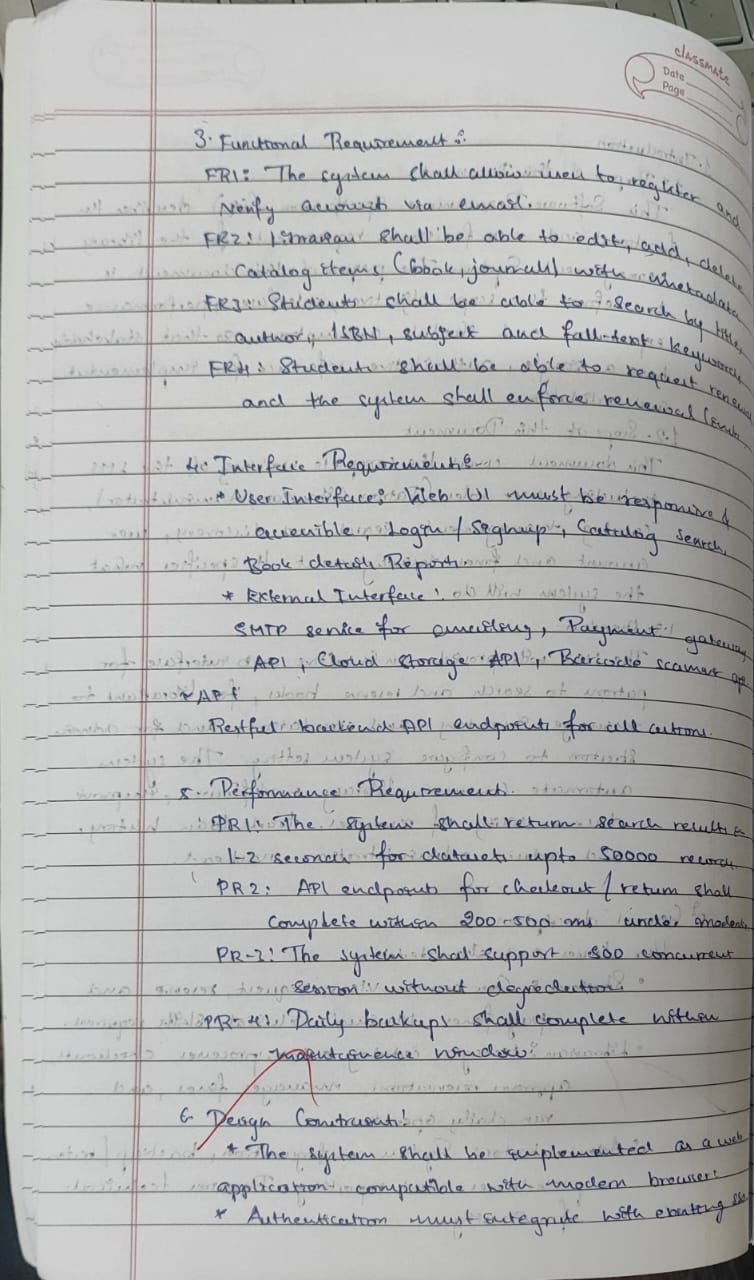 classmate
Date
Page
3. Functional Requirement :
FR1: The system shall allow user to, register and
Verify account via email.
FR2: Librarian shall be able to edit, add, delete
Catalog items (book, journal) with metadata
FR3: Students shall be able to search by title,
author, ISBN, subject and full-text keywords
FR4: Students shall be able to request renewal
and the system shall enforce renewal limits
4. Interface Requirements
* User Interface: Web UI must be responsive &
accessible, Login / Signup, Catalog Search,
Book details Report
* External Interface:
SMTP service for emailing, Payment gateway
API, Cloud Storage API, Barcode scanner
* API
Restful backend API endpoints for all actions.
5. Performance Requirement.
PR1: The system shall return search results
1-2 seconds for datasets upto 50000 records
PR2: API endpoints for checkout / return shall
Complete within 200-500 ms under
PR-3: The system shall support 300 concurrent
session without degredation.
PR-4: Daily backups shall complete within
window.
6. Design Constraint:
* The system shall be implemented as a web
application compatible with modern browser.
* Authentication must integrate with existing